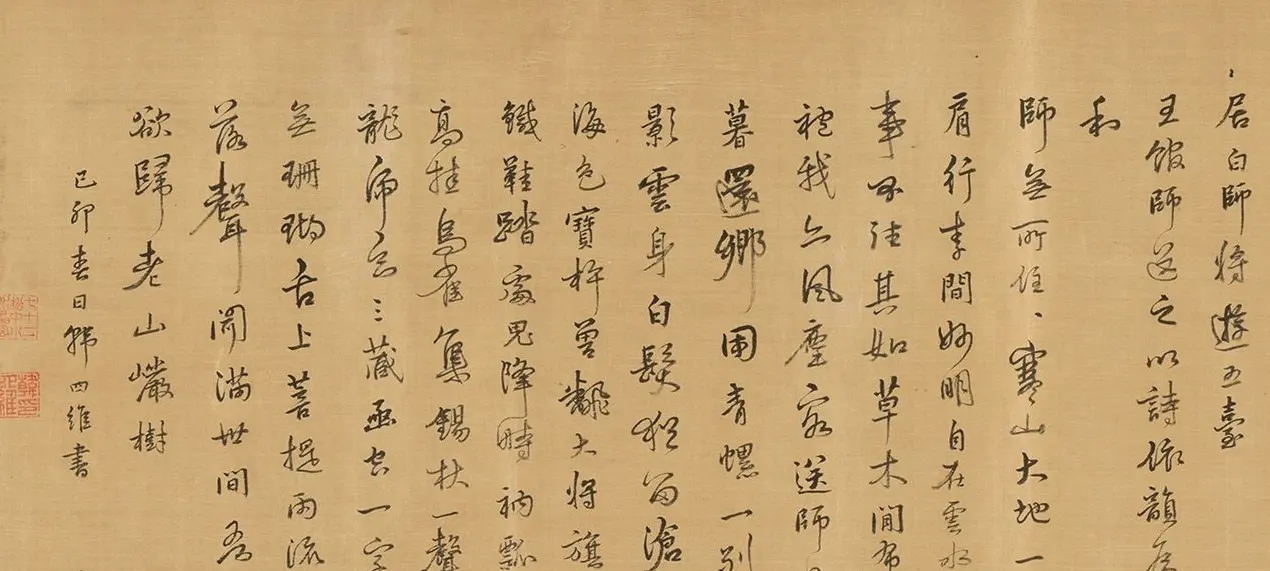 居白師將遊五臺
王館師送之以詩依韻
和
師無所住、寒山大地一
肩行李間妙明自在雲水
事不住其如草木間布
我亦風塵客送師
暮還鄉園青螺一別
影雲身白髮猶留滄
海色寶杵曾翻大將旗
鐵鞋踏處鬼降時衲瓢
高挂烏雀集錫杖一聲
龍虎三藏函空一字
無珊瑚舌上菩提雨流
落聲聞滿世間吾
欲歸老山巖樹
己卯春日韓四維書